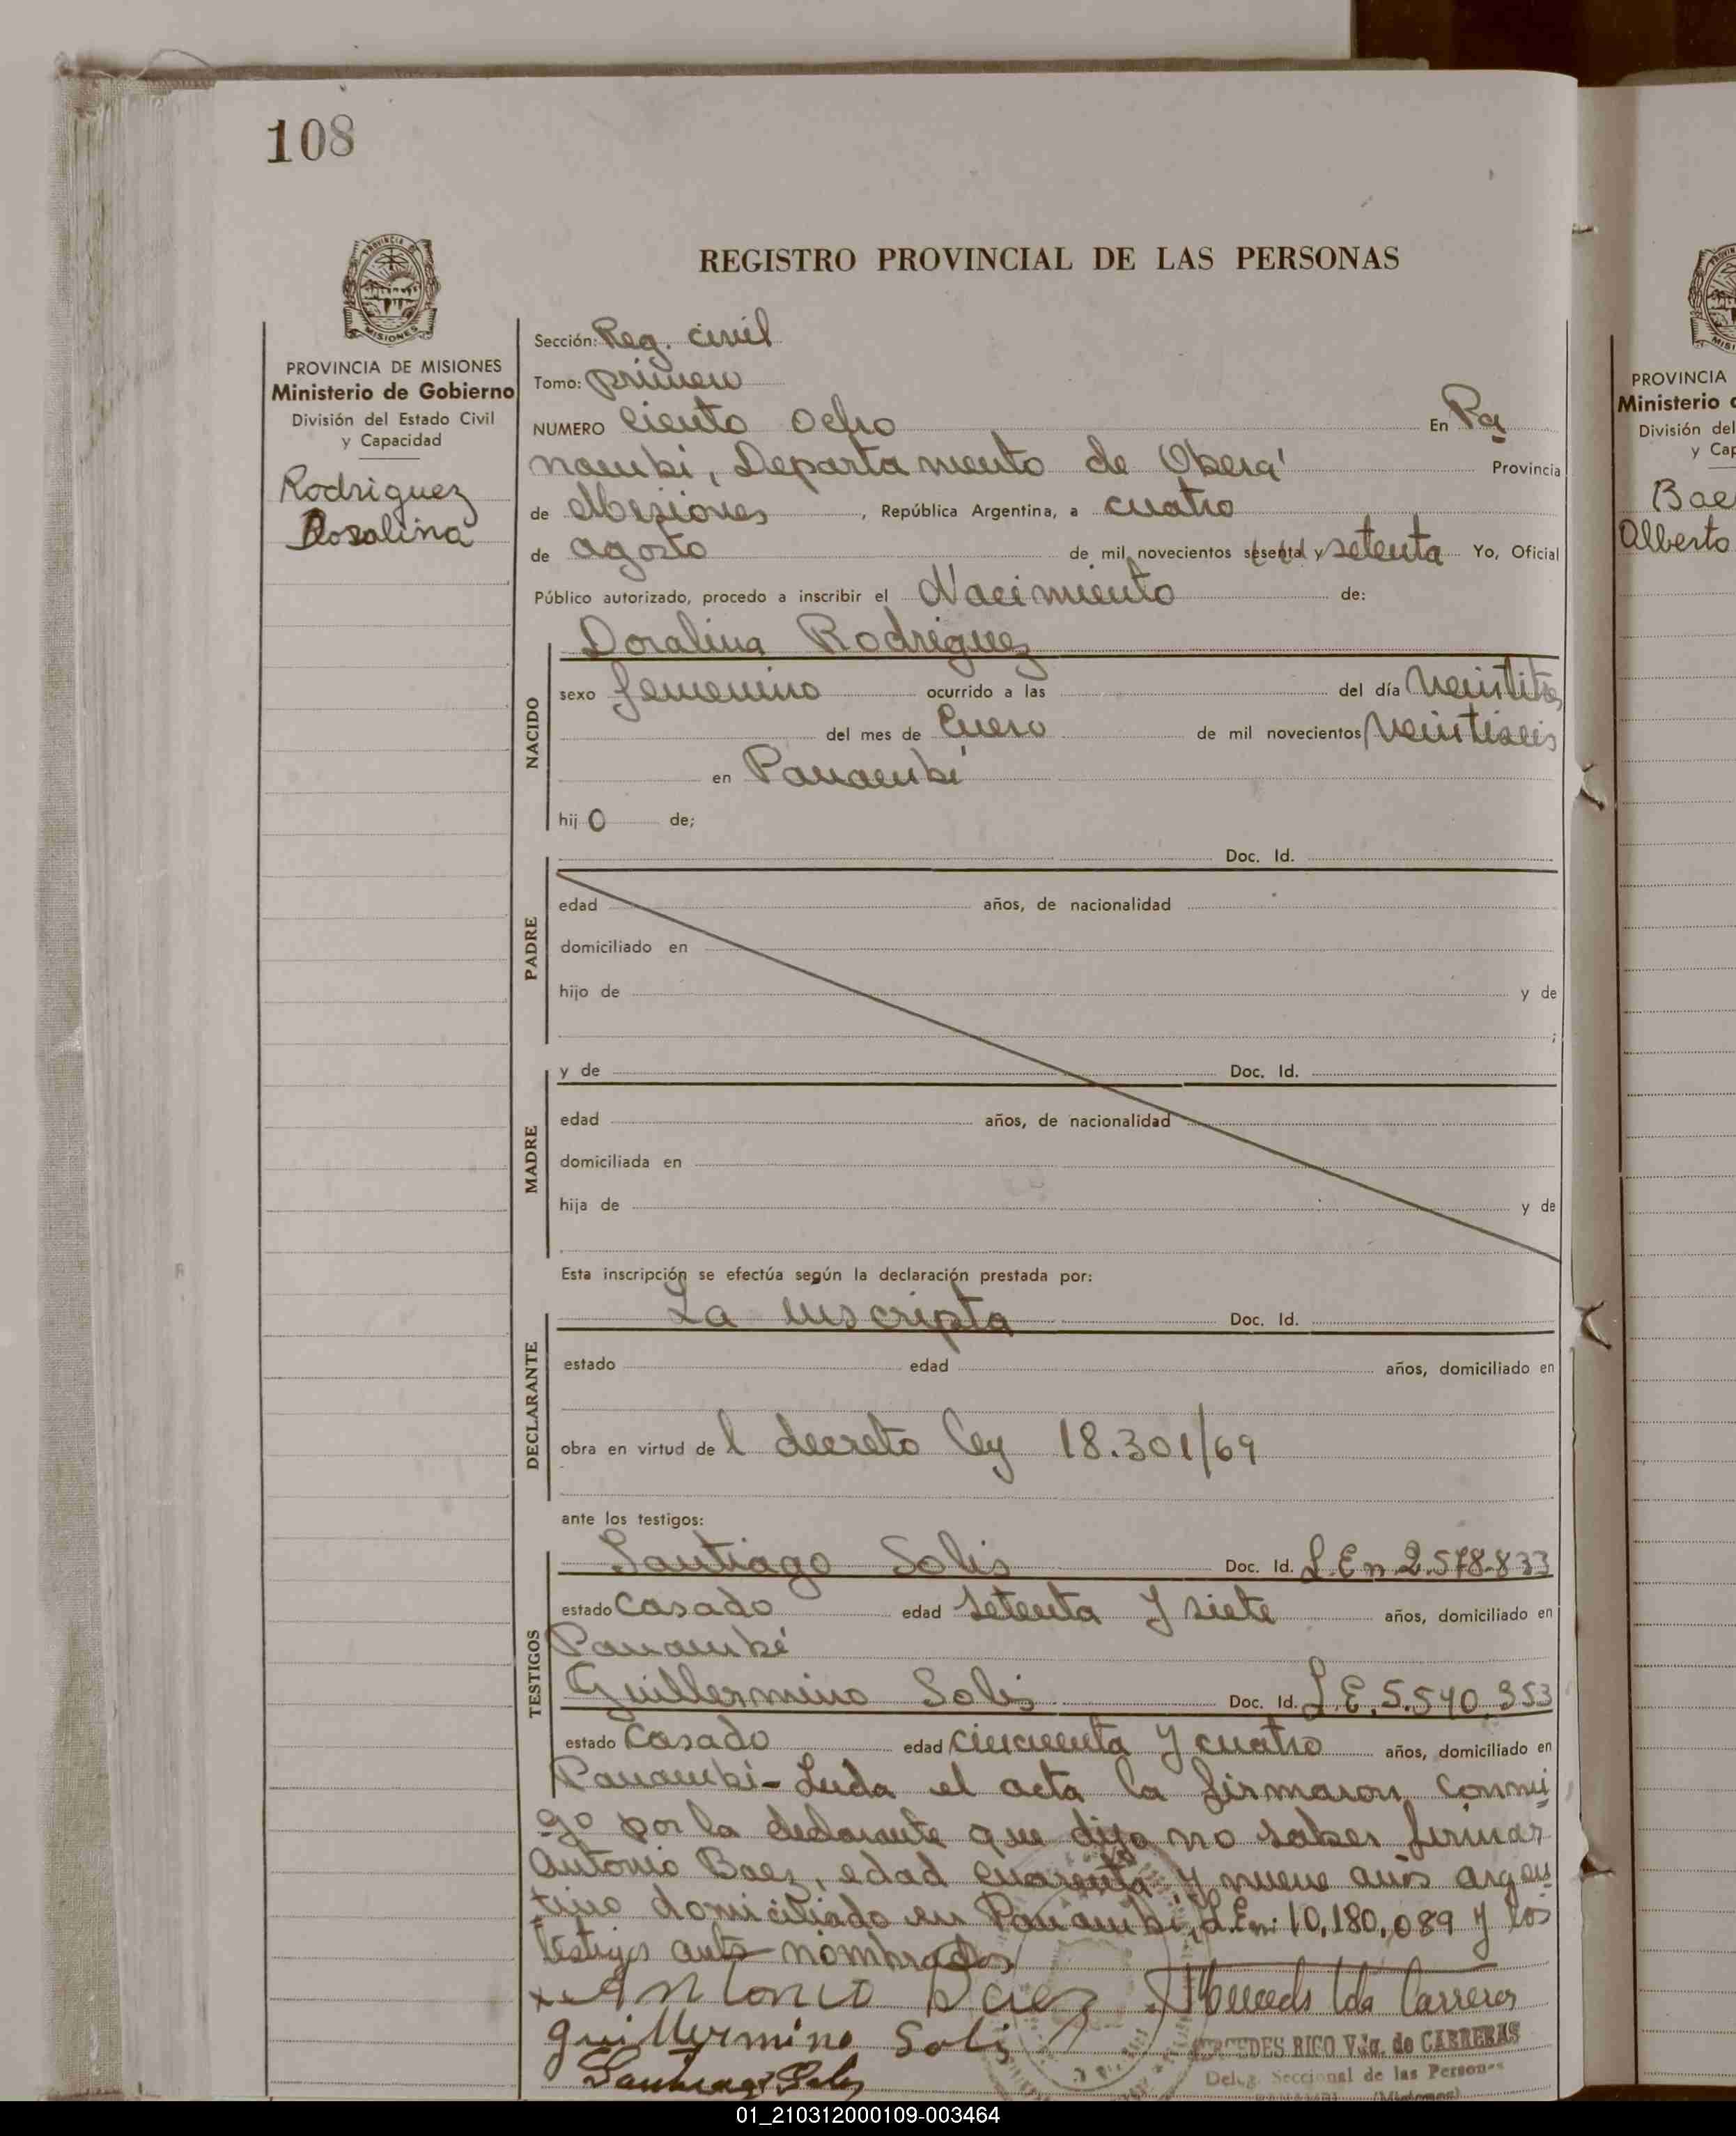 108
REGISTRO PROVINCIAL DE LAS PERSONAS
PROVINCIA DE MISIONES
Ministerio de Gobierno
División del Estado Civil
y Capacidad
Rodriguez
Dosalina
Sección: Reg. civil
Tomo: primero
NUMERO ciento ocho En Pa
nambi, Departamento de Oberá Provincia
de Misiones, República Argentina, a cuatro
de agosto de mil novecientos sesenta y setenta Yo, Oficial
Público autorizado, procedo a inscribir el Nacimiento de:
Doralina Rodriguez
NACIDO
sexo femenino ocurrido a las del día veintitres
del mes de Enero de mil novecientos veintiseis
en Panambí
hij O de;
PADRE
Doc. Id.
edad años, de nacionalidad
domiciliado en
hijo de y de
;
MADRE
y de Doc. Id.
edad años, de nacionalidad
domiciliada en
hija de y de
Esta inscripción se efectúa según la declaración prestada por:
DECLARANTE
La inscripta Doc. Id.
estado edad años, domiciliado en
obra en virtud de l decreto ley 18.301/69
ante los testigos:
TESTIGOS
Santiago Solis Doc. Id. L.E n 2.578.833
estado casado edad setenta y siete años, domiciliado en
Panambí
Guillermino Solis Doc. Id. L.E. 5.540.353
estado casado edad cincuenta y cuatro años, domiciliado en
Panambi- Leida el acta la firmaron conmi
go por la declarante que dijo no saber firmar
Antonio Baez, edad cuarenta y nueve años argen
tino domiciliado en Panambi, L.E.n: 10,180,089 y los
testigos ante nombrados
Antonio Baez
Guillermino Solis
Santiago Solis
MERCEDES RICO Vda. de CARRERAS
Deleg. Seccional de las Personas
(Misiones)
PROVINCIA
Ministerio
División del
y Cap
Bae
Alberto
01_210312000109-003464